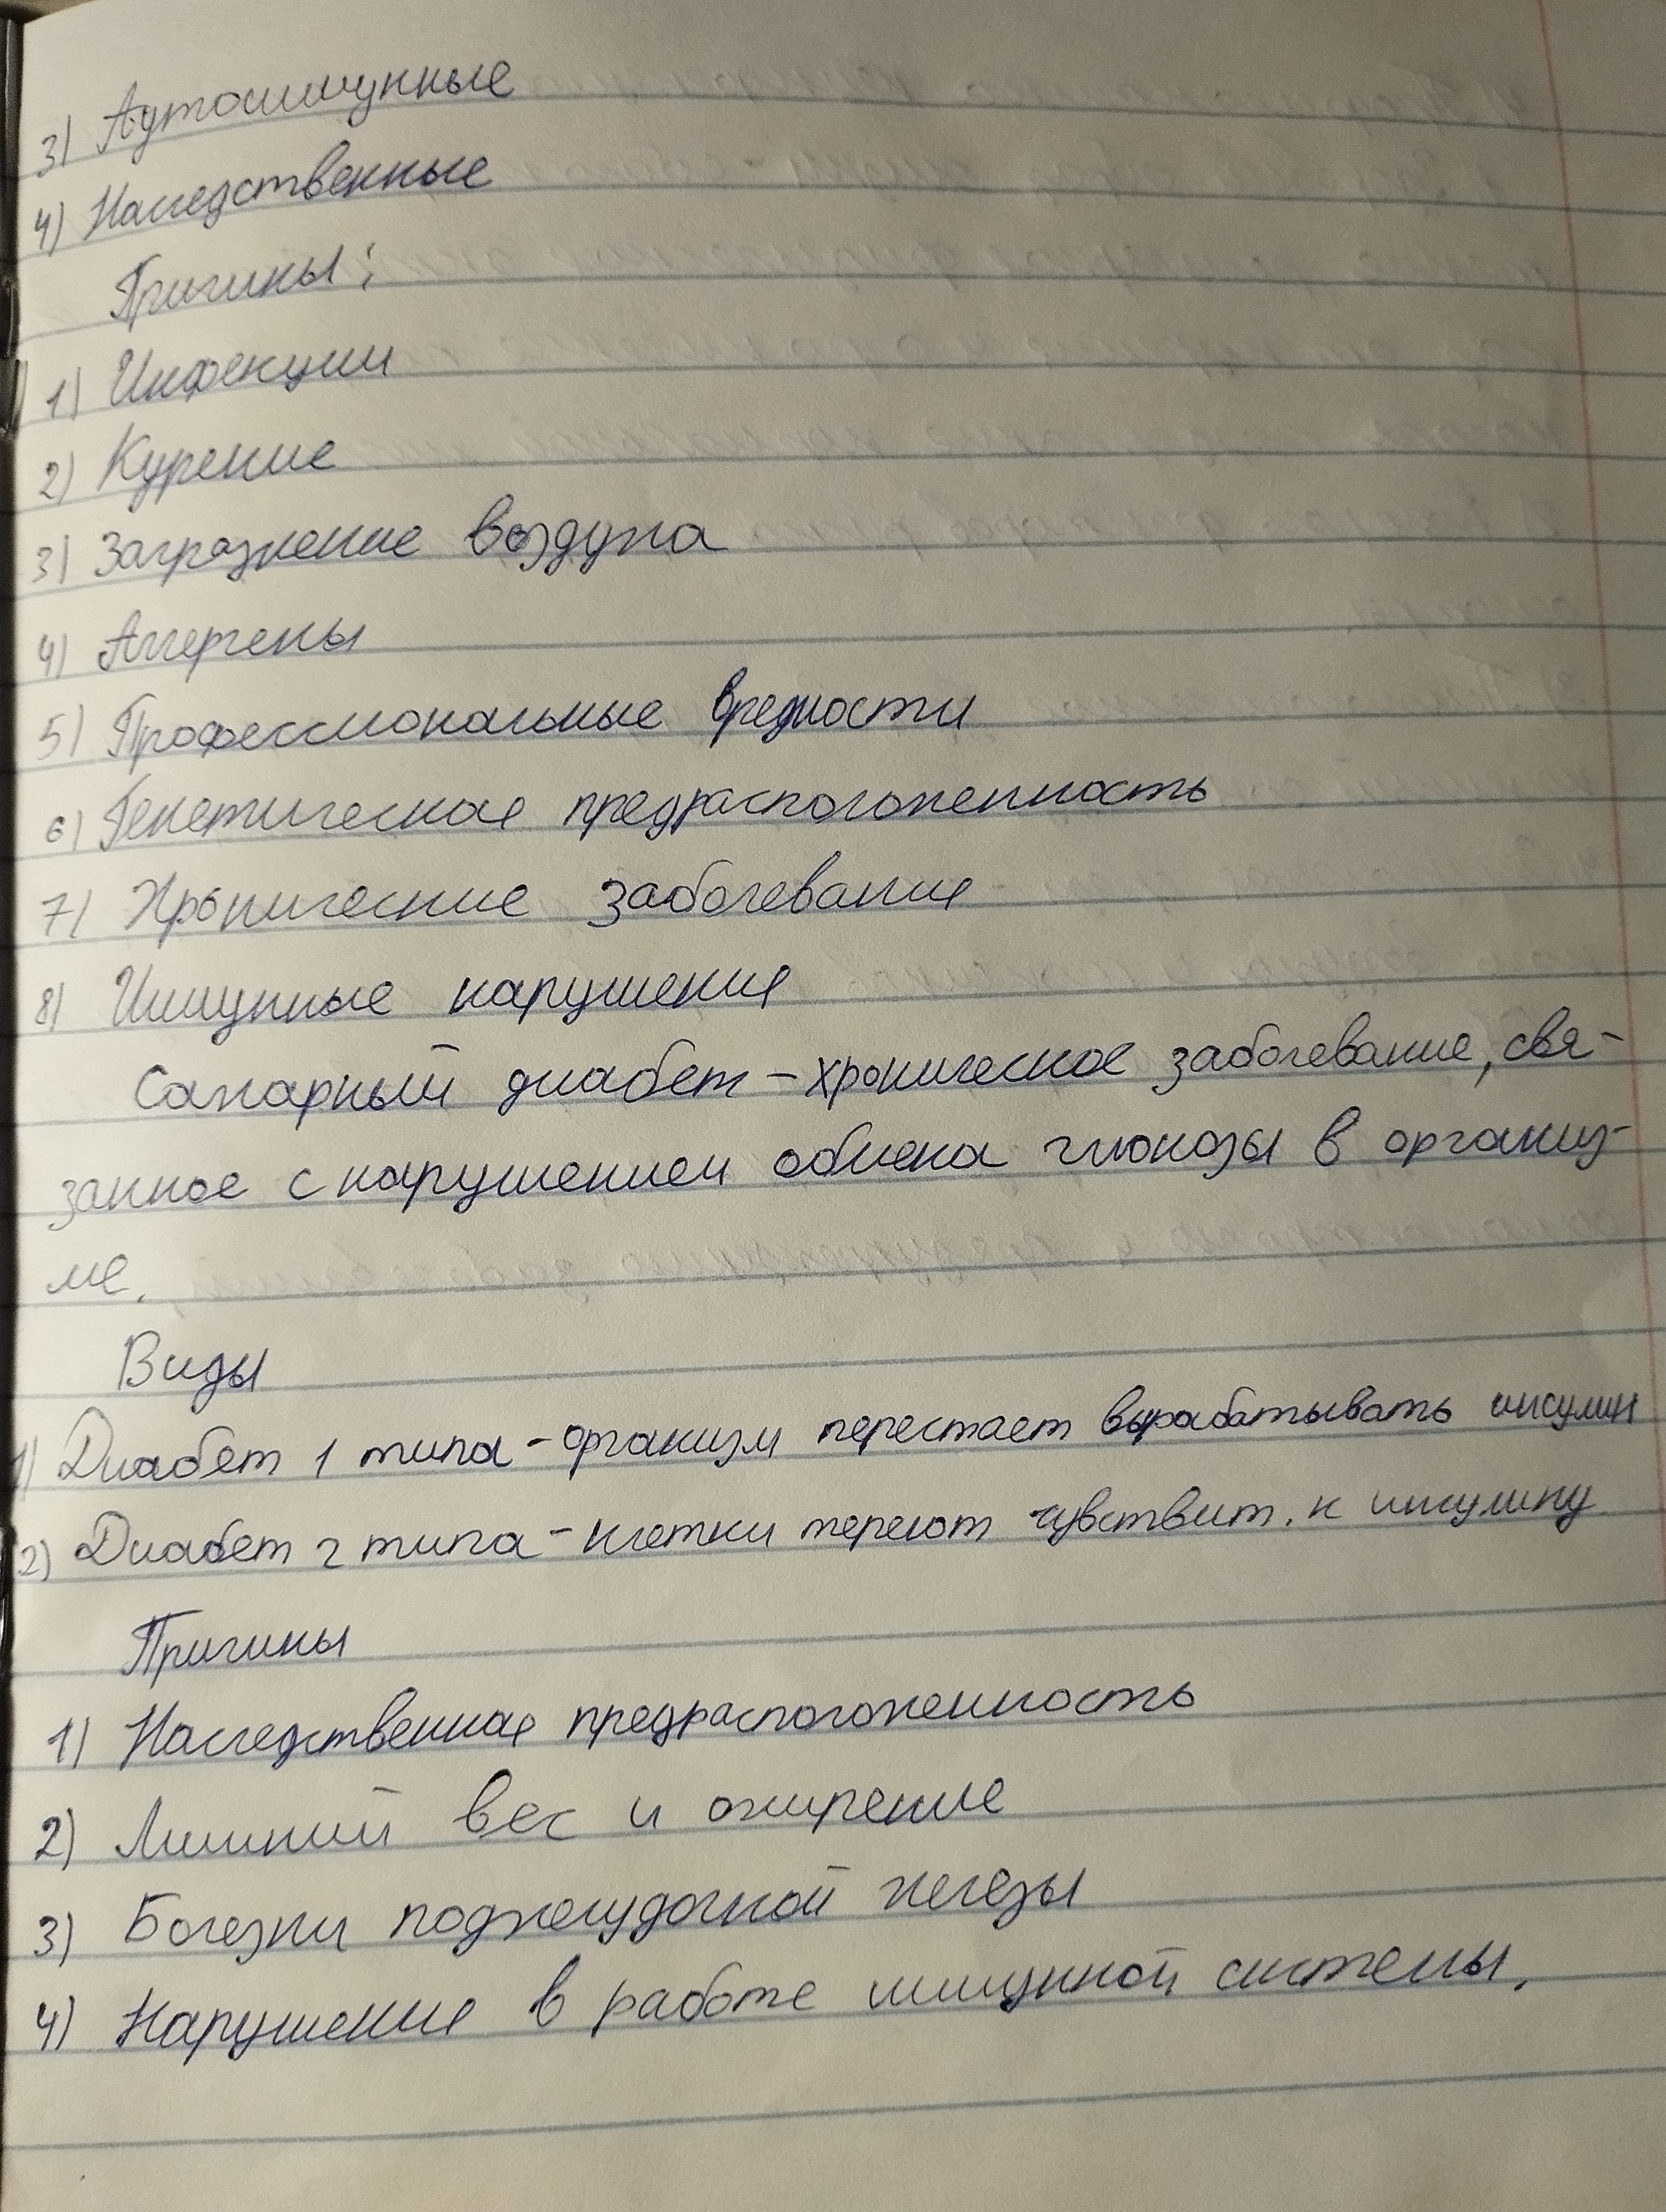 3) Аутоиммунные
4) Наследственные
Причины:
1) Инфекции
2) Курение
3) Загрязнение воздуха
4) Аллергены
5) Профессиональные вредности
6) Генетическая предрасположенность
7) Хронические заболевания
8) Иммунные нарушения
Сахарный диабет – хроническое заболевание, свя-
занное с нарушением обмена глюкозы в организ-
ме.
Виды
1) Диабет 1 типа – организм перестает вырабатывать инсулин
2) Диабет 2 типа – клетки теряют чувствит. к инсулину
Причины
1) Наследственная предрасположенность
2) Лишний вес и ожирение
3) Болезни поджелудочной железы
4) Нарушение в работе иммунной системы.